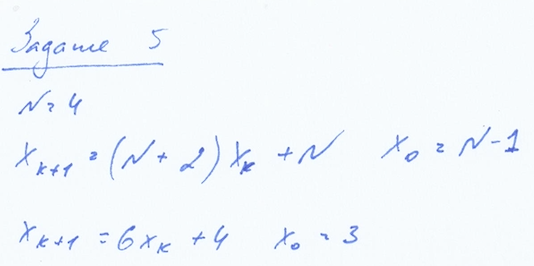 Задание 5
N = 4
x_{k+1} = (N + 2) x_k + N    x_0 = N - 1
x_{k+1} = 6x_k + 4    x_0 = 3